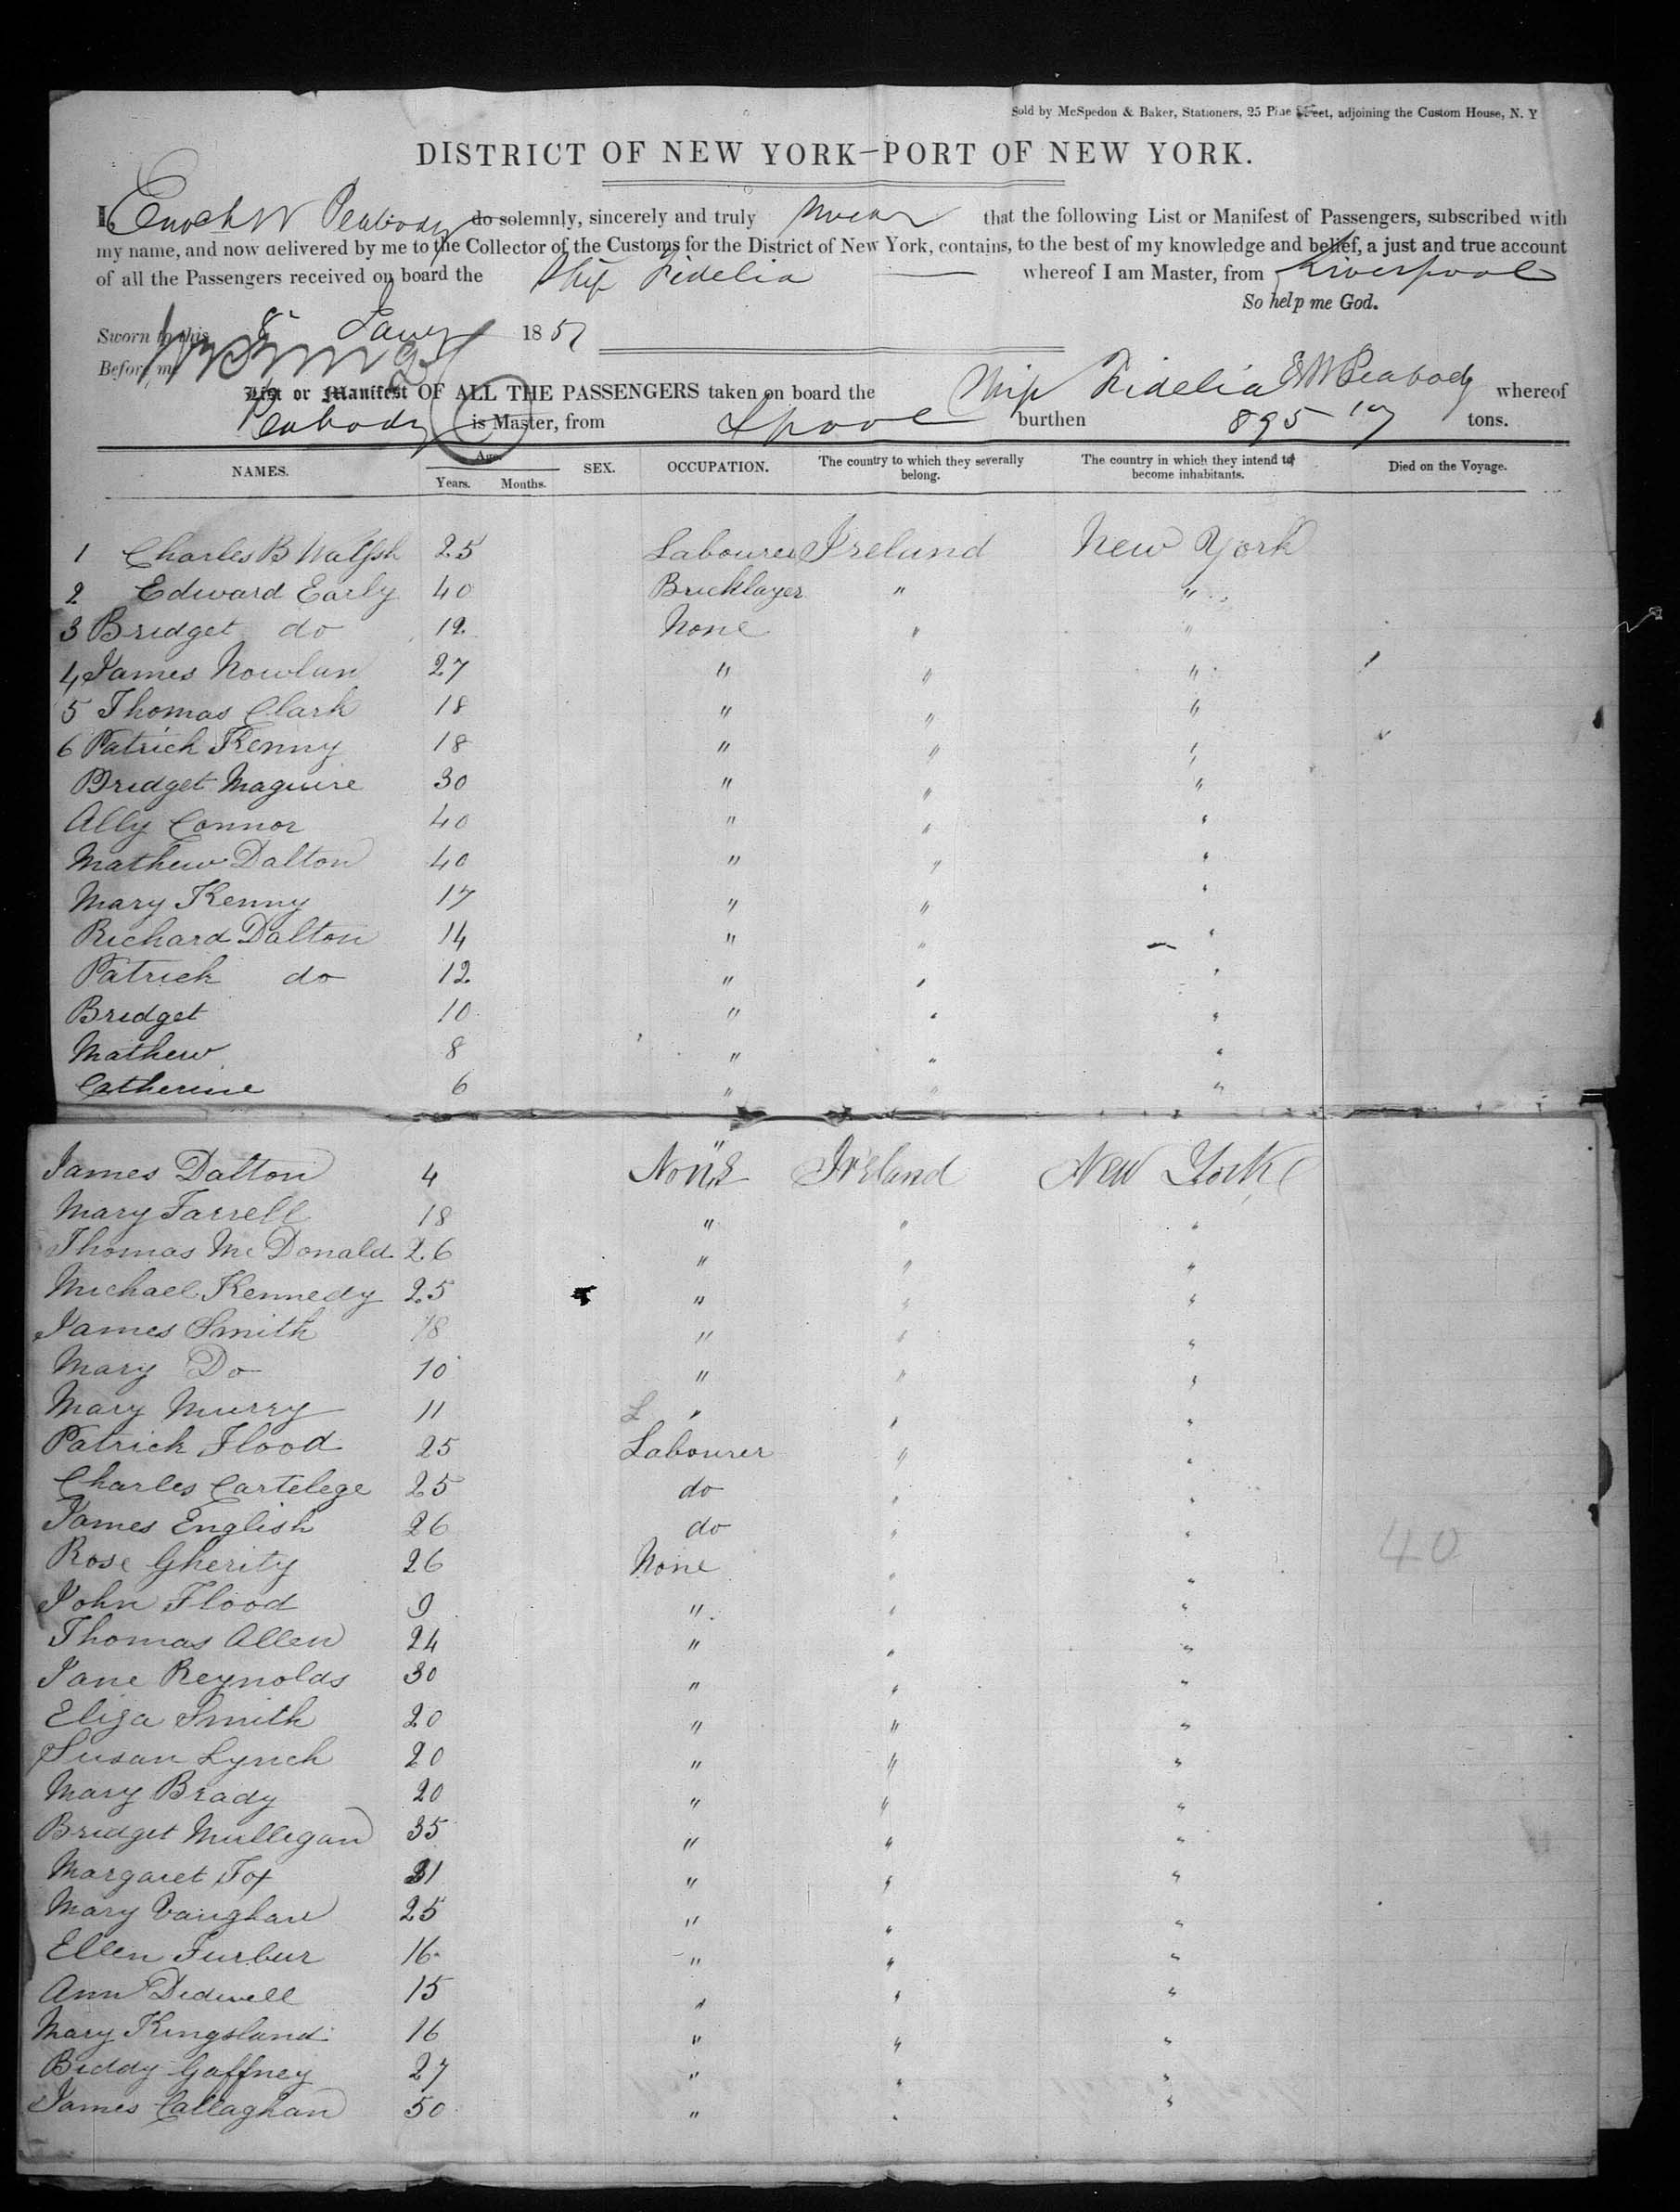 Sold by McSpedon & Baker, Stationers, 25 Pine Street, adjoining the Custom House, N. Y
DISTRICT OF NEW YORK—PORT OF NEW YORK.
I, Enoch W Peabody do solemnly, sincerely and truly swear that the following List or Manifest of Passengers, subscribed with
my name, and now delivered by me to the Collector of the Customs for the District of New York, contains, to the best of my knowledge and belief, a just and true account
of all the Passengers received on board the Ship Fidelia whereof I am Master, from Liverpool
So help me God.
Sworn to this 8 Jany 185
Before me E W Peabody
List or Manifest OF ALL THE PASSENGERS taken on board the Ship Fidelia whereof
Peabody is Master, from Lpool burthen 895 tons.
NAMES. Age. Years. Months. SEX. OCCUPATION. The country to which they severally belong. The country in which they intend to become inhabitants. Died on the Voyage.
1 Charles B Walsh 25 Labourer Ireland New York
2 Edward Early 40 Bricklayer " "
3 Bridget do 12 None " "
4 James Nowlan 27 " " "
5 Thomas Clark 18 " " "
6 Patrick Kenny 18 " " "
Bridget Maguire 30 " " "
Ally Connor 40 " " "
Mathew Dalton 40 " " "
Mary Kenny 17 " " "
Richard Dalton 14 " " "
Patrick do 12 " " "
Bridget 10 " " "
Mathew 8 " " "
Catherine 6 " " "
James Dalton 4 None Ireland New York
Mary Farrell 18 " " "
Thomas McDonald 26 " " "
Michael Kennedy 25 " " "
James Smith 18 " " "
Mary Do 10 " " "
Mary Murry 11 L " " "
Patrick Flood 25 Labourer " "
Charles Cartelege 25 do " "
James English 26 do " "
40
Rose Gherity 26 None " "
John Flood 9 " " "
Thomas Allen 24 " " "
Jane Reynolds 30 " " "
Eliza Smith 20 " " "
Susan Lynch 20 " " "
Mary Brady 20 " " "
Bridget Mulligan 35 " " "
Margaret Fox 31 " " "
Mary Vaughan 25 " " "
Ellen Furbur 16 " " "
Ann Didwell 15 " " "
Mary Kingsland 16 " " "
Biddy Gaffney 27 " " "
James Callaghan 50 " " "